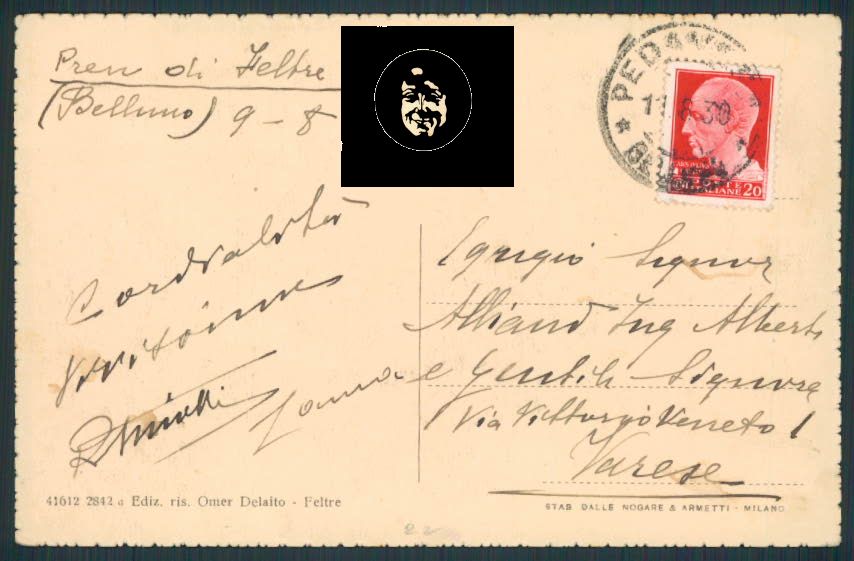 Pren di Feltre
(Belluno) 9 - 8
PEDAVENA
11.8.30
POSTE ITALIANE 20
Cordialità
Egregio Signor
Alliaud Ing Alberto
e Gentile Signora
Via Vittorio Veneto 1
Varese
41612 2842 a Ediz. ris. Omer Delaito - Feltre
STAB DALLE NOGARE & ARMETTI - MILANO
22